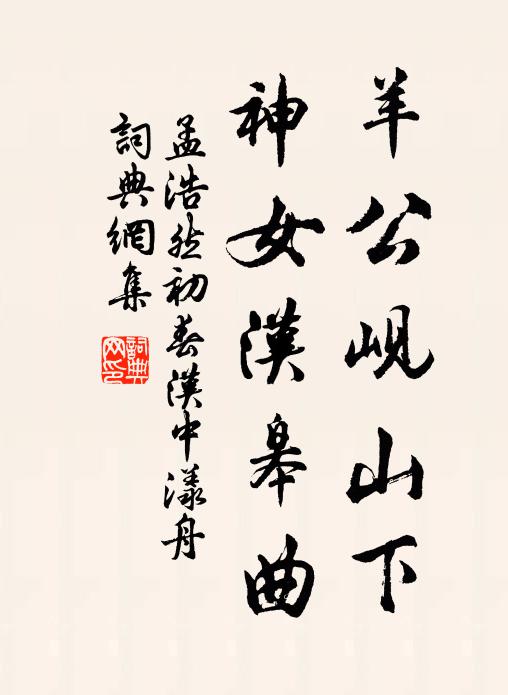 羊公峴山下
神女漢皋曲
孟浩然初春漢中漾舟
詞典網集
詞典網印